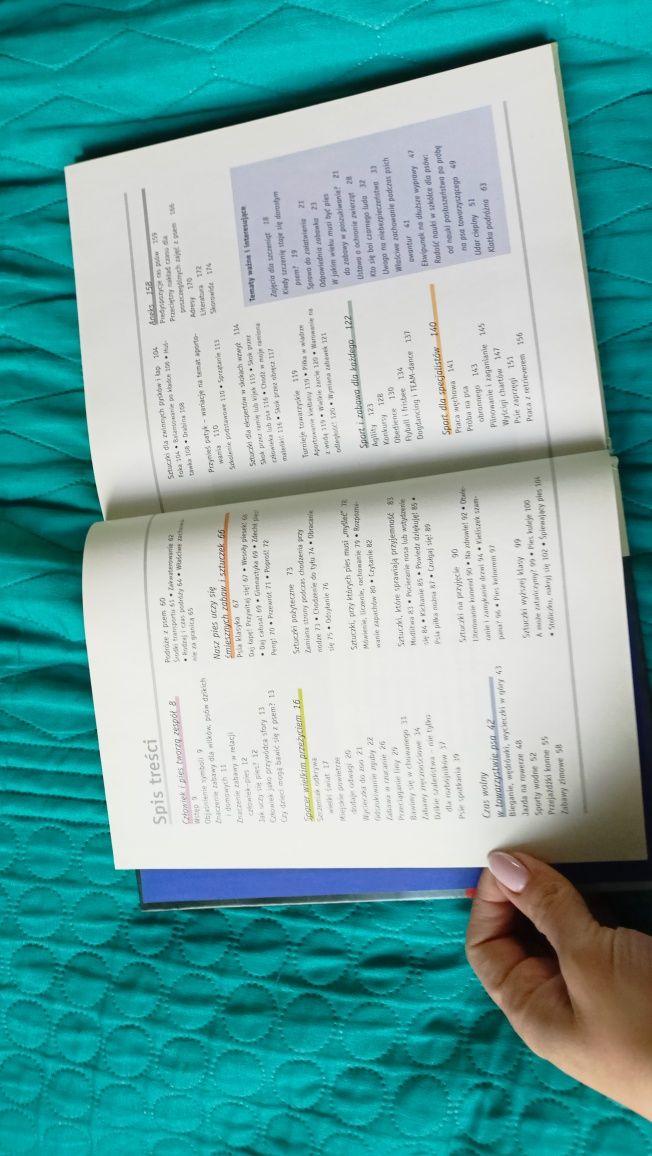 Spis treści
Człowiek i pies tworzą zespół 8
Wstęp 9
Objaśnienie symboli 9
Znaczenie zabawy dla wilków, psów dzikich
i domowych 11
Znaczenie zabawy w relacji
człowiek-pies 12
Jak uczy się pies? 12
Człowiek jako przywódca sfory 13
Czy dzieci mogą bawić się z psem? 13
Spacer wielkim przeżyciem 16
Szczeniak odkrywa
wielki świat 17
Miejskie powietrze
dodaje odwagi 20
Wycieczka do zoo 21
Odszukiwanie zguby 22
Zabawa w rzucanie 26
Przeciąganie liny 29
Bawimy się w chowanego 31
Zabawy zręcznościowe 34
Dzikie szaleństwa – nie tylko
dla nudziarzy 37
Psie spotkania 39
Czas wolny
w towarzystwie psa 42
Bieganie, wędrówki, wycieczki w góry 43
Jazda na rowerze 48
Sporty wodne 52
Przejażdżki konne 55
Zabawy zimowe 58
Podróże z psem 60
Środki transportu 61 • Zakwaterowanie 62
• Rodzaj i czas podróży 64 • Właściwe zachowa-
nie za granicą 65
Nasz pies uczy się
śmiesznych zabaw i sztuczek 66
Psia klasyka 67
Daj łapę! Przywitaj się! 67 • Wesoły piesek! 68
• Daj całusa! 69 • Gimnastyka 69 • Zdechł pies!
Peng! 70 • Przewrót 71 • Poproś! 72
Sztuczki pożyteczne 73
Zamiana strony podczas chodzenia przy
nodze 73 • Chodzenie do tyłu 74 • Obracanie
się 75 • Odsyłanie 76
Sztuczki, przy których pies musi „myśleć” 78
Mówienie, liczenie, rachowanie 79 • Rozpozna-
wanie zapachów 80 • Czytanie 82
Sztuczki, które sprawiają przyjemność 83
Modlitwa 83 • Pocieranie nosa lub wstydzenie
się 84 • Kichanie 85 • Powiedz dziękuję! 85 •
Psia piłka nożna 87 • Czołgaj się! 89
Sztuczki na przyjęcie 90
Literowanie komend 90 • Na zdrowie! 92 • Otwie-
ranie i zamykanie drzwi 94 • Kieliszek szam-
pana? 96 • Pies kelnerem 97
Sztuczki wyższej klasy 99
A może zatańczymy? 99 • Pies kuleje 100
• Stoliczku, nakryj się 102 • Śpiewający pies 104
Sztuczki dla zwinnych pysków i łap 104
Foka 104 • Balansowanie po kładce 106 • Huś-
tawka 108 • Drabina 108
Przynieś patyk – wariacje na temat aporto-
wania 110
Szkolenie podstawowe 110 • Sprzątanie 113
Sztuczki dla ekspertów w skokach wzwyż 114
Skok przez ramię lub kijek 115 • Skok przez
człowieka lub psa 116 • Chodź w moje ramiona
maleńki! 116 • Skok przez obręcz 117
Turnieje towarzyskie 119
Aportowanie kiełbasy 119 • Piłka w wiadrze
z wodą 119 • Wielkie żarcie 120 • Warowanie na
odległość 120 • Wymiana zabawek 121
Sport i zabawa dla każdego 122
Agility 123
Konkursy 128
Obedience 130
Flyball i frisbee 134
Dogdancing i TEAM-dance 137
Sport dla specjalistów 140
Praca węchowa 141
Próba na psa
obronnego 143
Pilnowanie i zaganianie 145
Wyścigi chartów 147
Psie zaprzęgi 151
Praca z retrieverem 156
Aneks 158
Predyspozycje ras psów 159
Przeciętny nakład czasu dla
poszczególnych zajęć z psem 166
Adresy 170
Literatura 172
Skorowidz 174
Tematy ważne i interesujące
Zajęcia dla szczeniąt 18
Kiedy szczenię staje się dorosłym
psem? 19
Sprawa do załatwienia 21
Odpowiednia zabawka 23
W jakim wieku musi być pies
do zabawy w poszukiwania? 21
Ustawa o ochronie zwierząt 28
Kto się boi czarnego luda 32
Uwaga na niebezpieczeństwa 33
Właściwe zachowanie podczas psich
awantur 41
Ekwipunek na dłuższe wyprawy 47
Radość nauki w szkółce dla psów:
od nauki posłuszeństwa po próbę
na psa towarzyszącego 49
Udar cieplny 51
Klatka podróżna 63